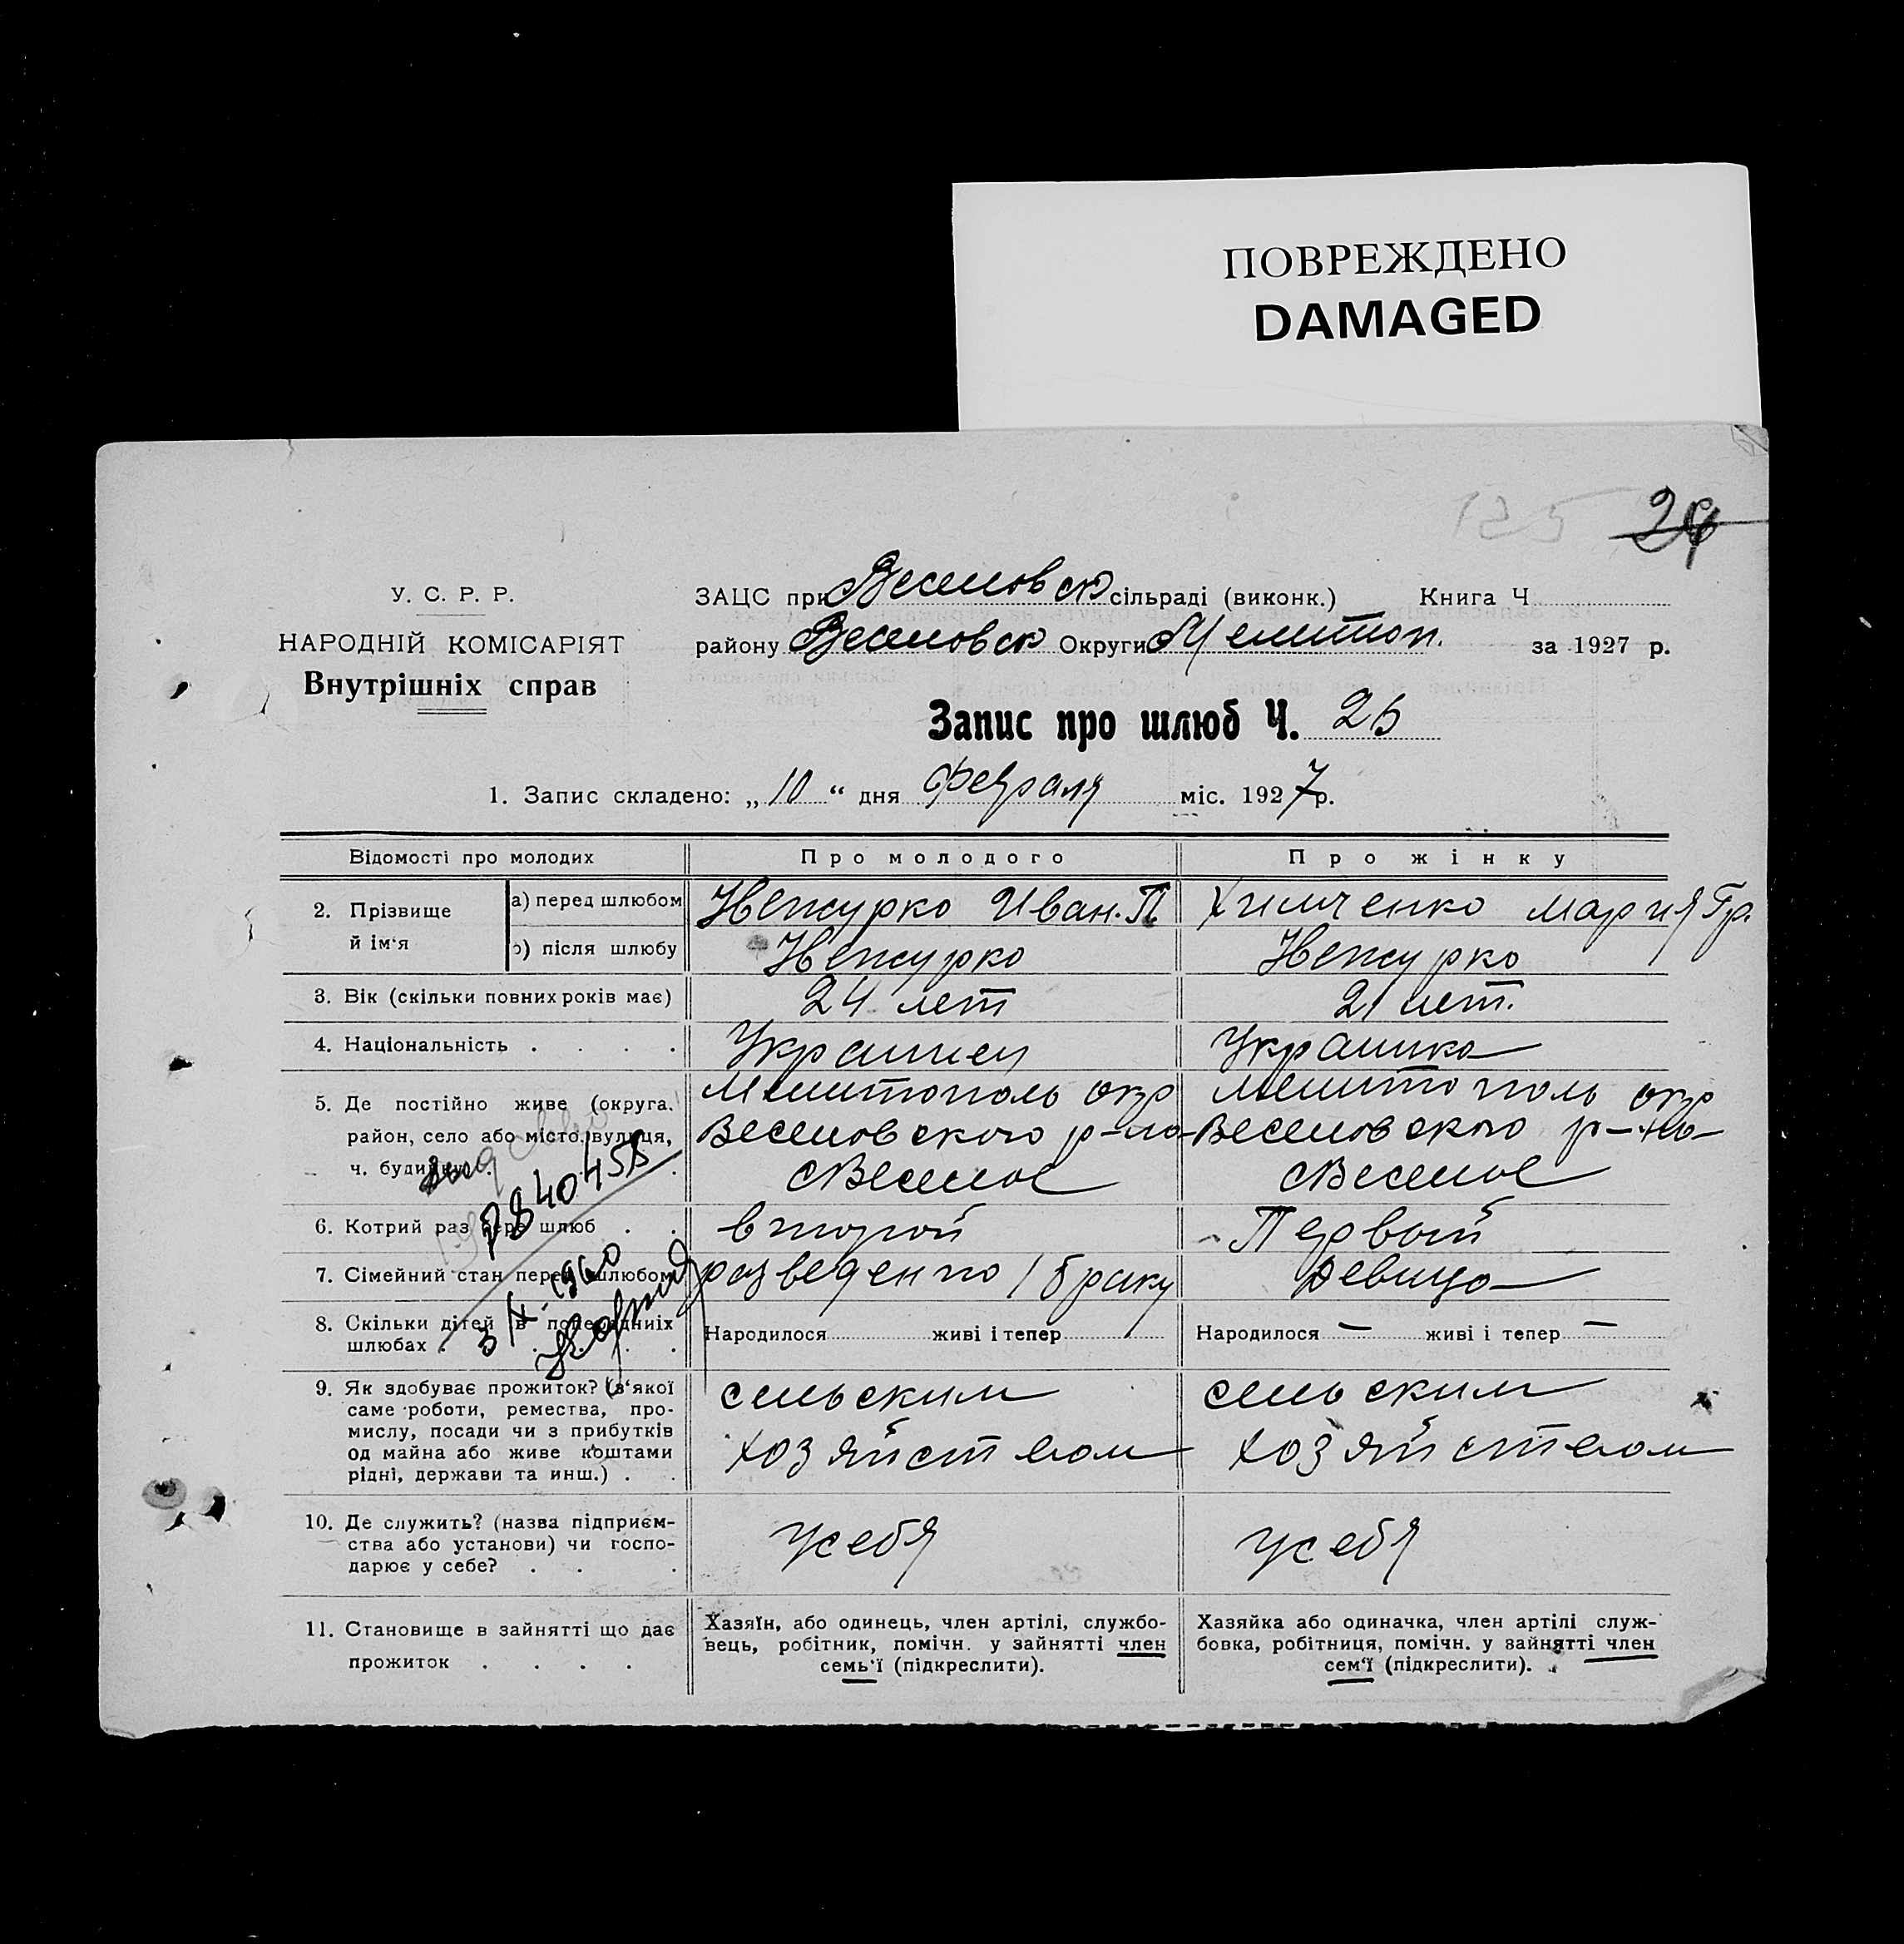 ПОВРЕЖДЕНО
DAMAGED
125 24
У. С. Р. Р.
НАРОДНІЙ КОМІСАРІЯТ
Внутрішніх справ
ЗАЦС при Веселовск сільраді (виконк.) Книга Ч
району Веселовск Округи Мелитоп. за 1927 р.
Запис про шлюб Ч. 25
1. Запис складено: „10“ дня февраля міс. 1927 р.
Відомості про молодих Про молодого Про жінку
2. Прізвище й ім‘я
а) перед шлюбом Нежурко Иван. П. Химченко Мария Гр.
б) після шлюбу Нежурко Нежурко
3. Вік (скільки повних років має) 24 лет 21 лет.
4. Національність . . . . Украинец Украинка
5. Де постійно живе (округа, Мелитополь окр Мелитополь окр
район, село або місто, вулиця, Веселовского р-на Веселовского р-на
ч. будинку) . с Веселое с Веселое
6. Котрий раз бере шлюб . . второй Первый
7. Сімейний стан перед шлюбом разведен по 1 браку Девица
8. Скільки дітей в попередніх
шлюбах . . . . Народилося живі і тепер Народилося — живі і тепер —
840455
3/X-1960
9. Як здобуває прожиток? (з‘якої сельским сельским
саме роботи, ремества, про-
мислу, посади чи з прибутків хозяйством хозяйством
од майна або живе коштами
рідні, держави та инш.) . .
10. Де служить? (назва підприєм- у себя у себя
ства або установи) чи госпо-
дарює у себе? . . .
11. Становище в зайнятті що дає
прожиток . . . .
Хазяїн, або одинець, член артілі, службо-
вець, робітник, помічн. у зайнятті член
семь‘ї (підкреслити).
Хазяйка або одиначка, член артілі служ-
бовка, робітниця, помічн. у зайнятті член
сем‘ї (підкреслити).